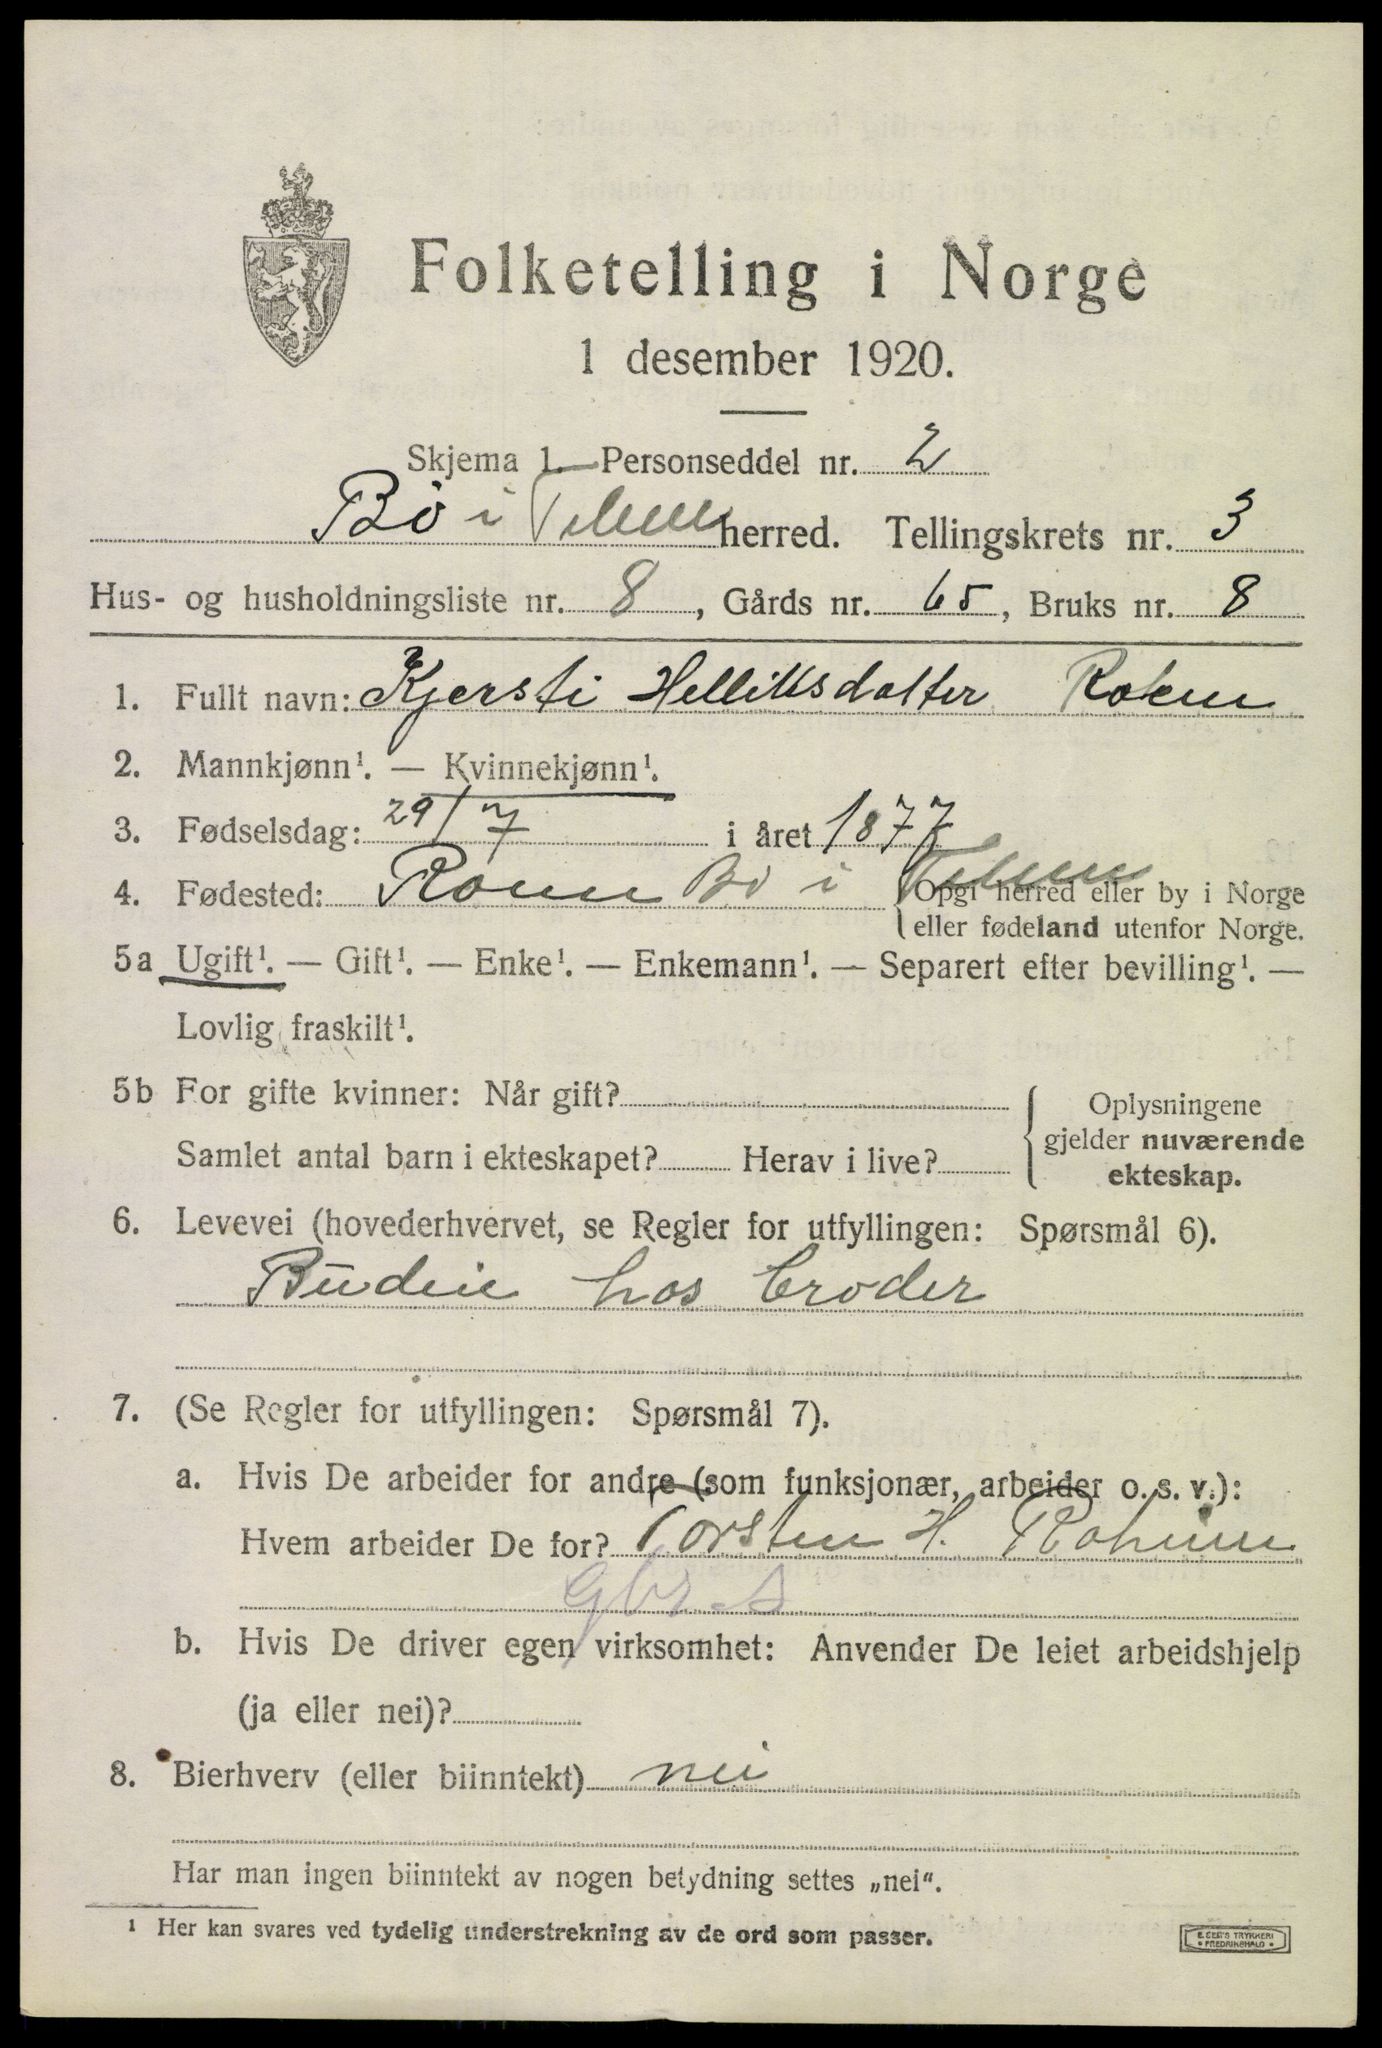 Folketelling i Norge
1 desember 1920.
Skjema 1. Personseddel nr. 2
Bø i Telem herred. Tellingskrets nr. 3
Hus- og husholdningsliste nr. 8, Gårds nr. 65, Bruks nr. 8
1. Fullt navn: Kjersti Helliksdatter
2. Mannkjønn¹. — Kvinnekjønn¹.
3. Fødselsdag: 29/7 i året 1877
4. Fødested: Bø i Telem {Opgi herred eller by i Norge
eller fødeland utenfor Norge.
5a Ugift¹. — Gift¹. — Enke¹. — Enkemann¹. — Separert efter bevilling¹. —
Lovlig fraskilt¹.
5b For gifte kvinner: Når gift?
Samlet antal barn i ekteskapet? Herav i live?
{ Oplysningene
gjelder nuværende
ekteskap.
6. Levevei (hovederhvervet, se Regler for utfyllingen: Spørsmål 6).
Budeie hos broder
7. (Se Regler for utfyllingen: Spørsmål 7).
a. Hvis De arbeider for andre (som funksjonær, arbeider o. s. v.):
Hvem arbeider De for? Torsten H.
Gbr. S
b. Hvis De driver egen virksomhet: Anvender De leiet arbeidshjelp
(ja eller nei)?
8. Bierhverv (eller biinntekt) nei
Har man ingen biinntekt av nogen betydning settes „nei“.
¹ Her kan svares ved tydelig understrekning av de ord som passer.
E. SEM'S TRYKKERI
• FREDRIKSHALD •